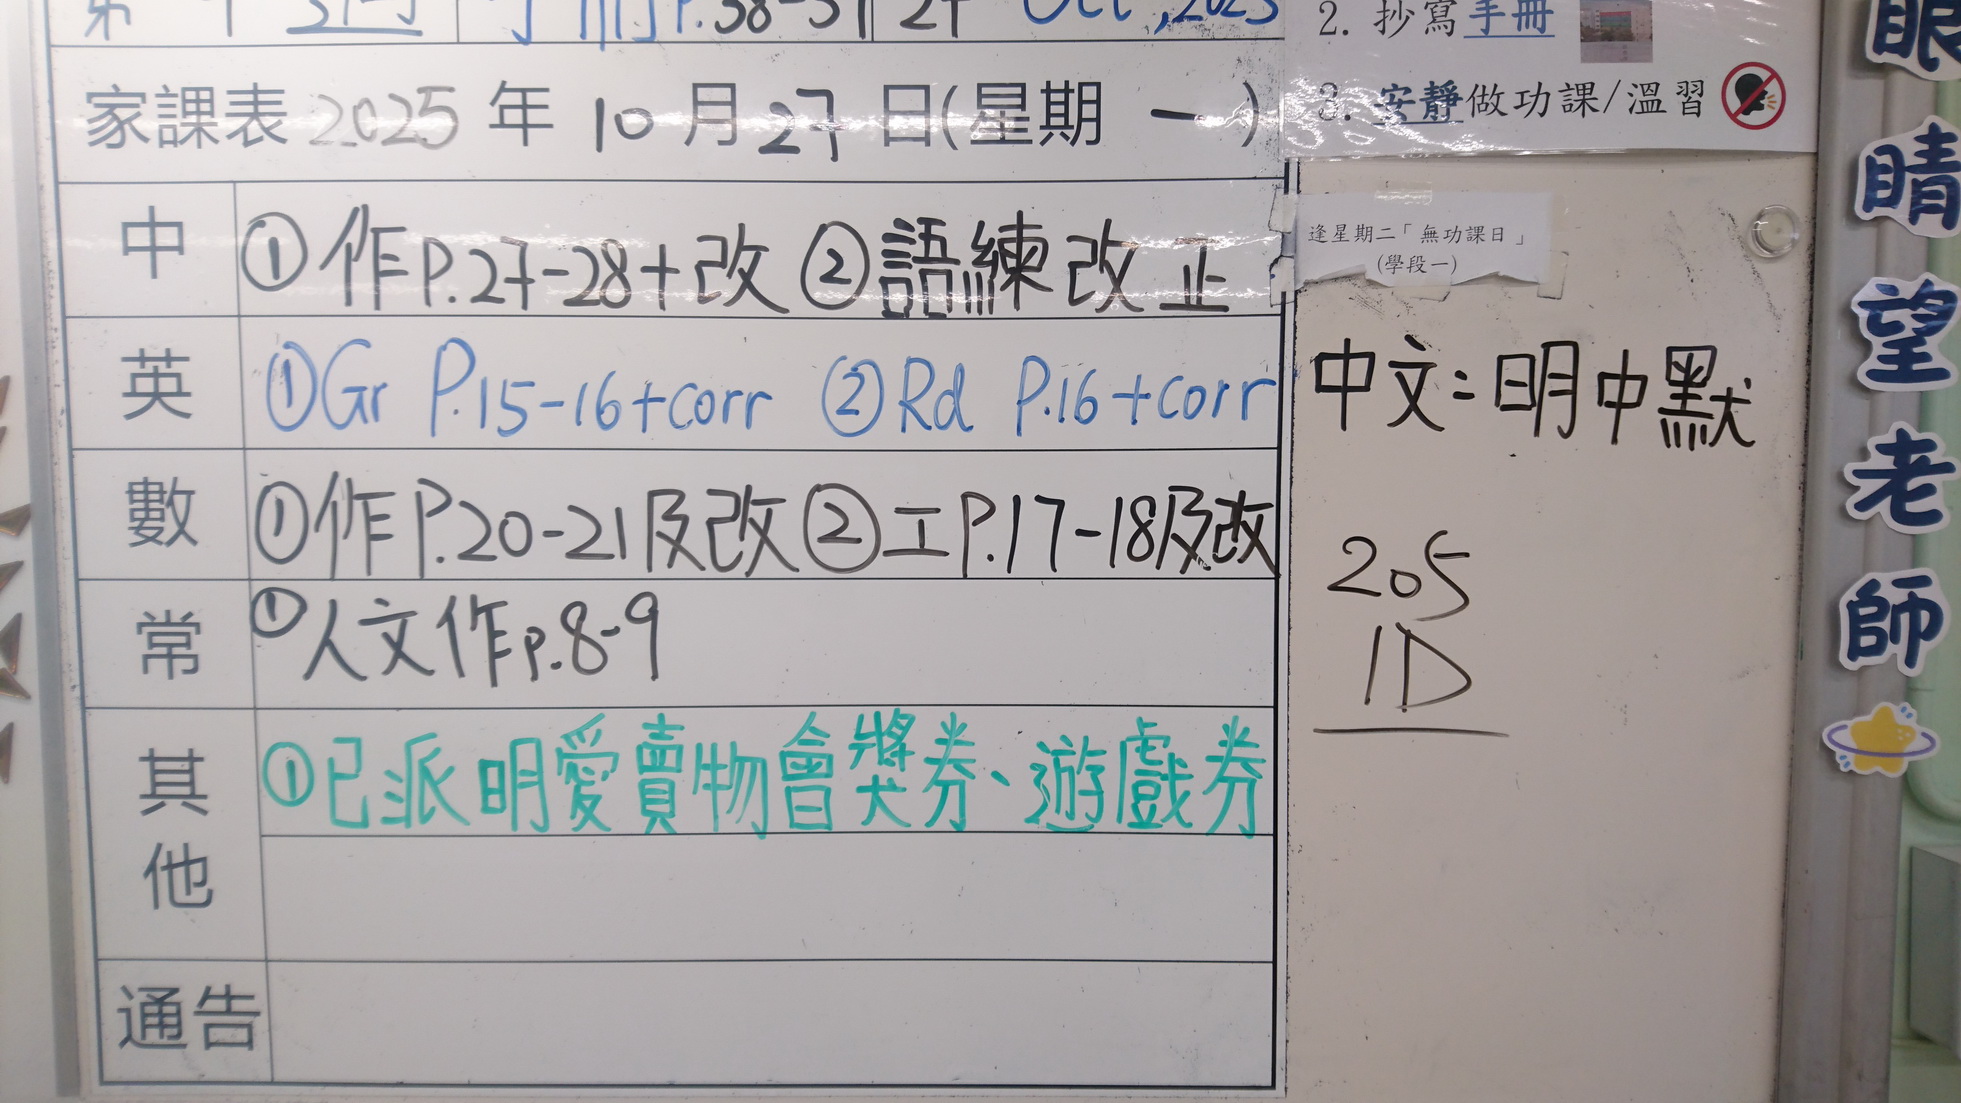 手冊P.38-39 24 Oct, 2025
家課表 2025 年 10 月 27 日(星期 一 )
中 ①作P.27-28+改 ②語練改正
英 ①Gr P.15-16+corr ②Rd P.16+corr
數 ①作P.20-21及改 ②工P.17-18及改
常 ①人文作p.8-9
其他 ①已派明愛賣物會獎券、遊戲券
通告
2. 抄寫手冊
3. 安靜做功課/溫習
逢星期二「無功課日」
(學段一)
中文:明中默
205
1D
眼睛望老師